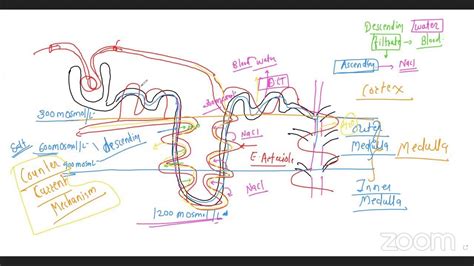 Descending water
Filtrate → Blood
Ascending → NaCl
Cortex
Blood water
DCT
300 mosmol/L
600 mosmol/L
900 mosmol/L
descending
Counter
Current
Mechanism
1200 mosmol/L
NaCl
NaCl
E Arteriole
Outer
Medulla
Medulla
Inner
Medulla
zoom